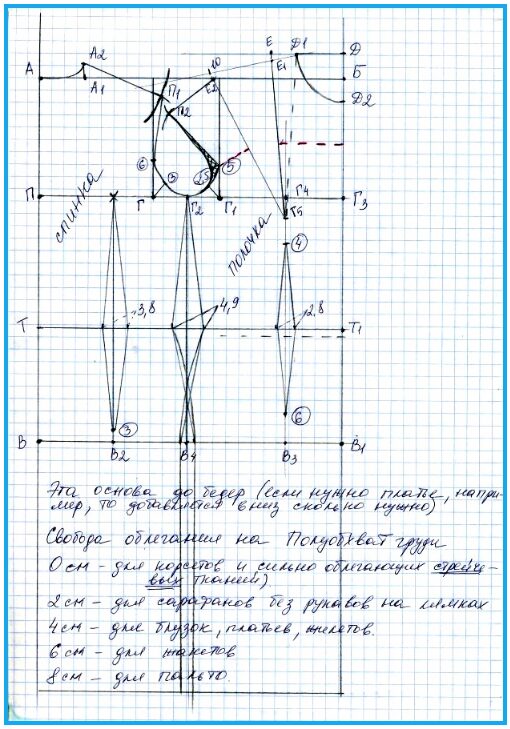 Е Д1 Д
А2 10 Е1
А А1 Е2 Б
П1 Д2
П2
6 5
3 2,5
П Г Г2 Г1 Г4 Г3
Г5
спинка полочка
4
3,8 4,9 2,8
Т Т1
3 6
В В2 В4 В3 В1
Эта основа до бедер (если нужно платье, напри-
мер, то добавляется вниз сколько нужно)
Свобода облегания на Полуобхват груди
0 см - для корсетов и сильно облегающих стрейче-
вых тканей)
2 см - для сарафанов без рукавов на лямках
4 см - для блузок, платьев, жилетов.
6 см - для жакетов
8 см - для пальто.